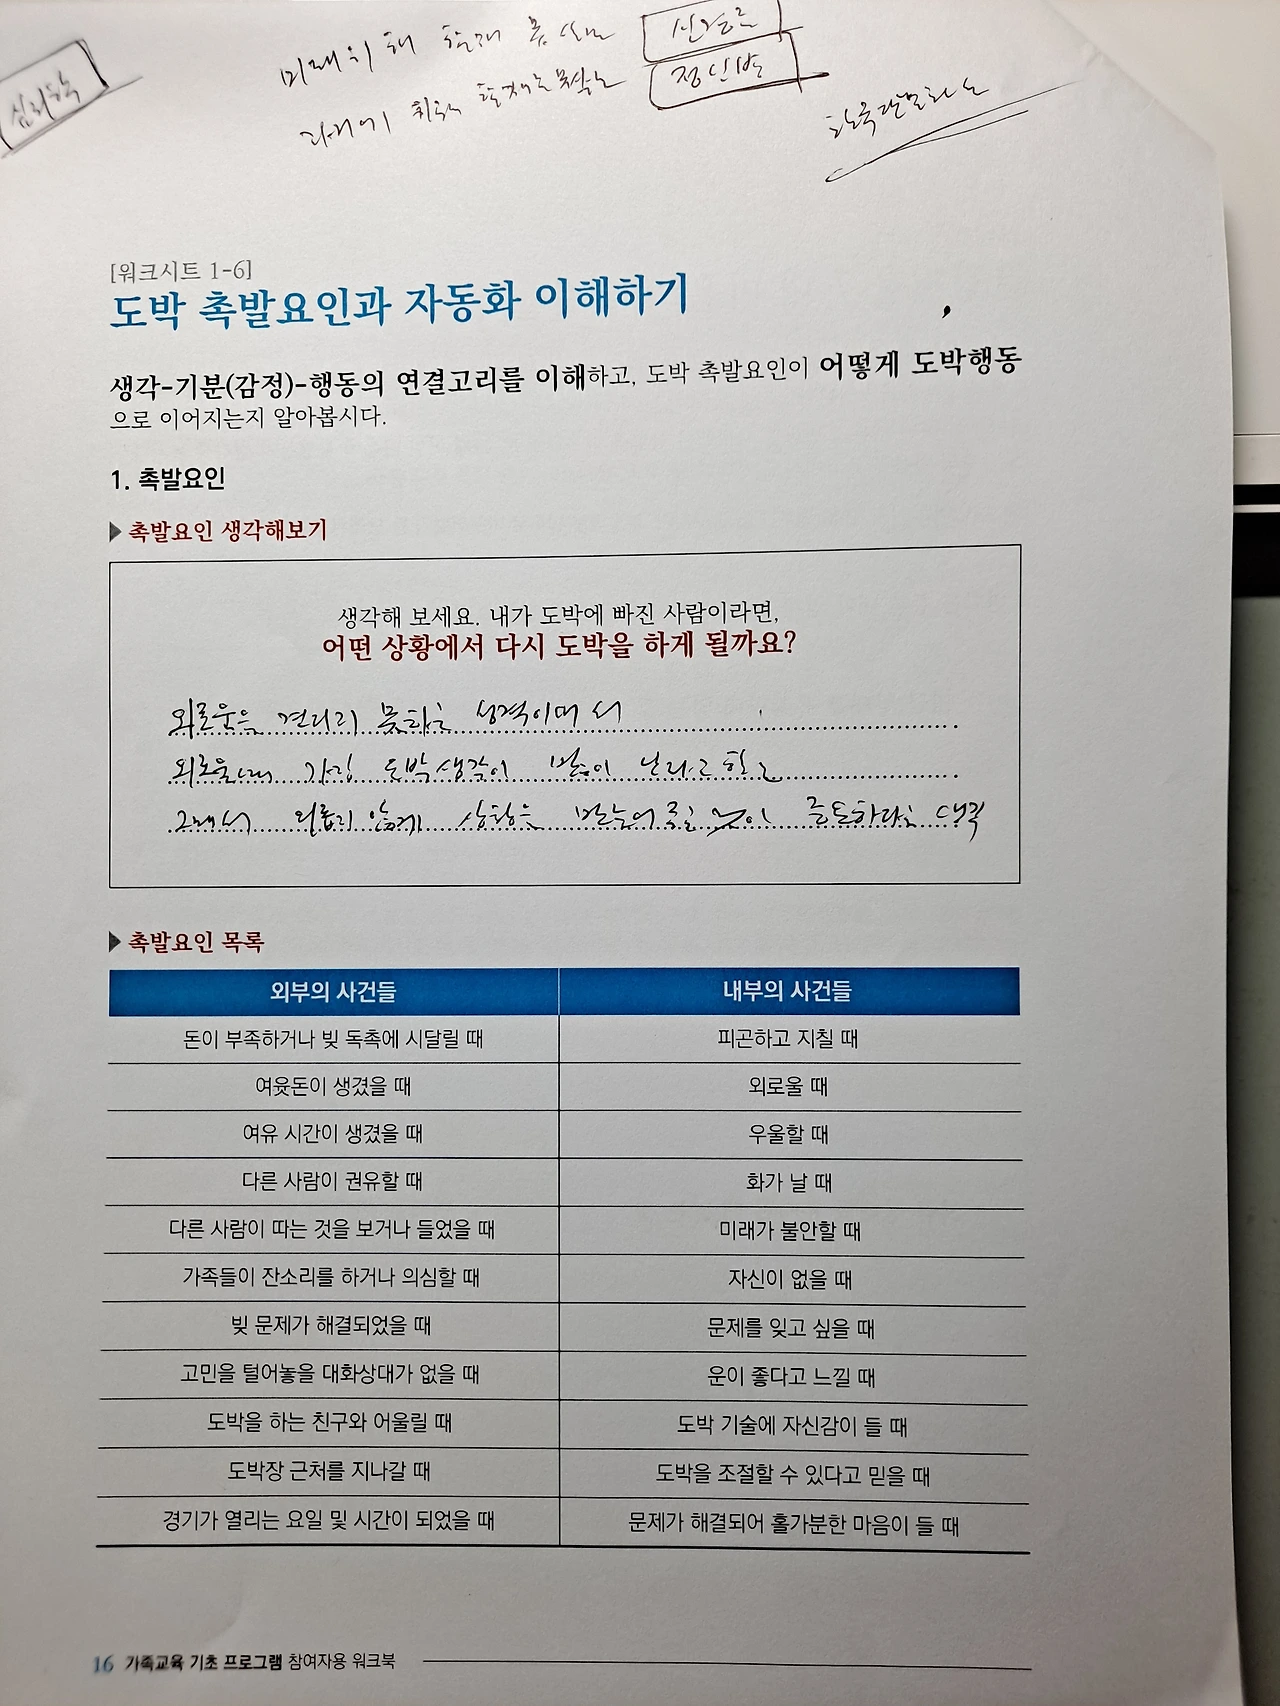 미래의 해 현재 못 사는 신경증
과거에 현재는 못사는 정신병
[워크시트 1-6]
도박 촉발요인과 자동화 이해하기
생각-기분(감정)-행동의 연결고리를 이해하고, 도박 촉발요인이 어떻게 도박행동
으로 이어지는지 알아봅시다.
1. 촉발요인
▶ 촉발요인 생각해보기
생각해 보세요. 내가 도박에 빠진 사람이라면,
어떤 상황에서 다시 도박을 하게 될까요?
외로움을 견디지 못하는 성격이며 서
외로울때 가장 도박생각이 많이 난다고 함
그래서 외롭지 않게 상황을 만들어줄 것이 중요하다고 생각
▶ 촉발요인 목록
외부의 사건들 내부의 사건들
돈이 부족하거나 빚 독촉에 시달릴 때 피곤하고 지칠 때
여윳돈이 생겼을 때 외로울 때
여유 시간이 생겼을 때 우울할 때
다른 사람이 권유할 때 화가 날 때
다른 사람이 따는 것을 보거나 들었을 때 미래가 불안할 때
가족들이 잔소리를 하거나 의심할 때 자신이 없을 때
빚 문제가 해결되었을 때 문제를 잊고 싶을 때
고민을 털어놓을 대화상대가 없을 때 운이 좋다고 느낄 때
도박을 하는 친구와 어울릴 때 도박 기술에 자신감이 들 때
도박장 근처를 지나갈 때 도박을 조절할 수 있다고 믿을 때
경기가 열리는 요일 및 시간이 되었을 때 문제가 해결되어 홀가분한 마음이 들 때
16 가족교육 기초 프로그램 참여자용 워크북